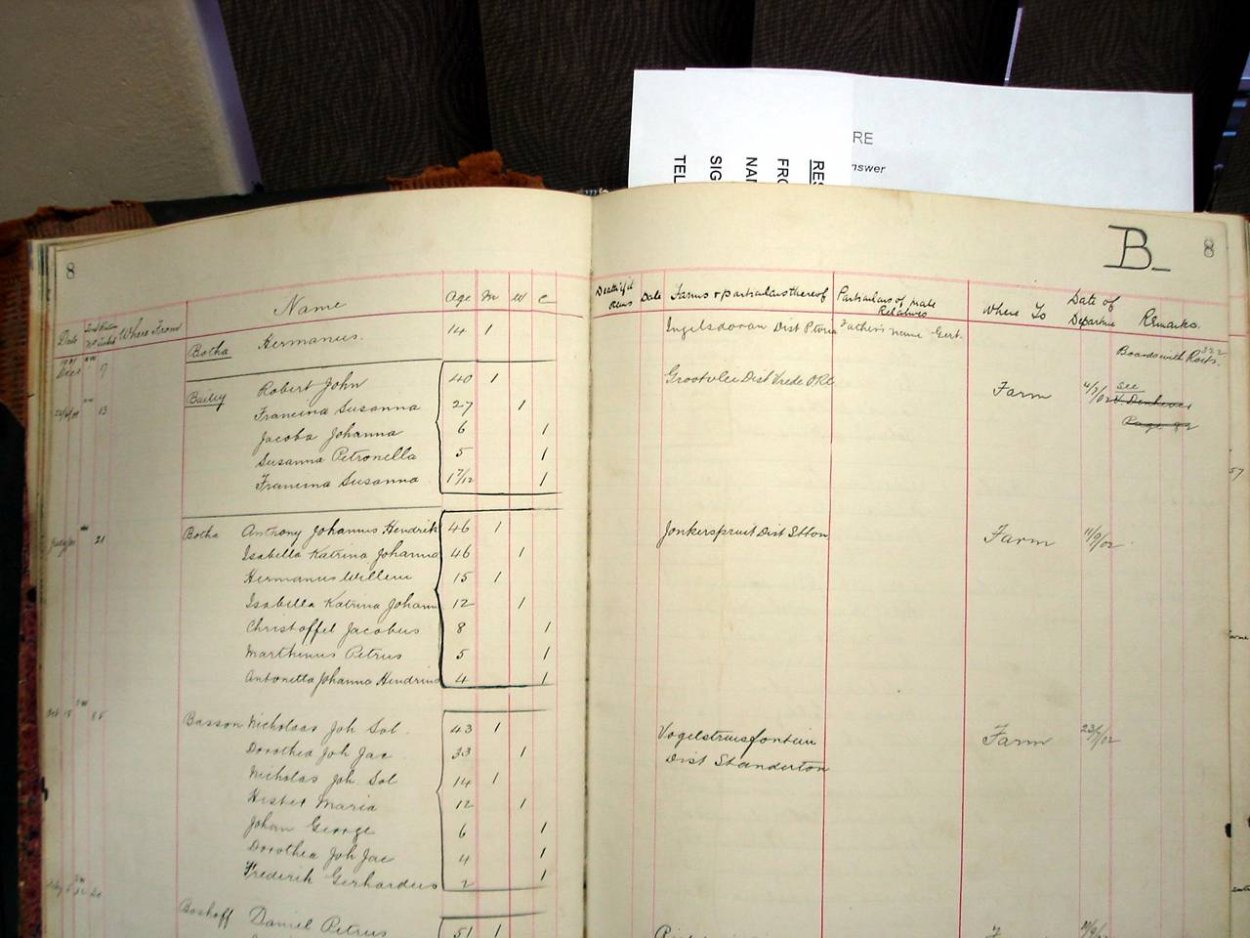 RE
nswer
RES
FRO
NAM
SIG
TEL
B. 8
8
Name Age M W C Date Farms & particulars thereof Particulars of male Relatives Where To Date of Departure Remarks.
Date Where From
Botha Hermanus. 14 1 Dist Pturia Father's name Gert.
Boards with Roets.
Dec 9
Bailey Robert John 40 1 Grootvlei Dist Vrede ORC Farm see
13 Francina Susanna 27 1
Page 82
Jacoba Johanna 6 1
Susanna Petronella 5 1
Francina Susanna 1 7/12 1
21 Botha Anthony Johannes Hendrik 46 1 Jonkerspruit Dist Farm 11/9/02
Isabella Katrina Johanna 46 1
Hermanus Willem 15 1
Isabella Katrina Johann 12 1
Christoffel Jacobus 8 1
Marthinus Petrus 5 1
Antonetta Johanna Hendrina 4 1
Basson Nicholaas Joh Sol. 43 1 Vogelstruisfontein Farm 23/6/02
Dorothea Joh Jac 33 1 Dist Standerton
Nicholas Joh. Sol 14 1
Hester Maria 12 1
Johan George 6 1
Dorothea Joh Jac 4 1
Frederik Gerhardus 2 1
Boshoff Daniel Petrus 51 1